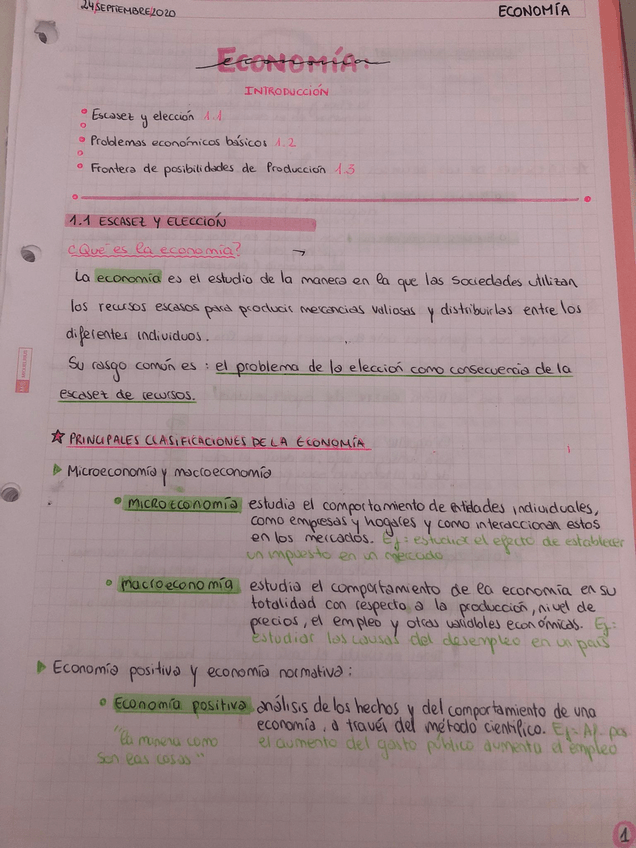 24 SEPTIEMBRE 2020
ECONOMÍA
ECONOMÍA
INTRODUCCIÓN
Escasez y elección 1.1
Problemas económicos básicos 1.2
Frontera de posibilidades de Producción 1.3
1.1 ESCASEZ Y ELECCIÓN
¿Qué es la economía?
La economía es el estudio de la manera en la que las sociedades utilizan
los recursos escasos para producir mercancías valiosas y distribuirlas entre los
diferentes individuos.
Su rasgo común es: el problema de la elección como consecuencia de la
escasez de recursos.
☆ PRINCIPALES CLASIFICACIONES DE LA ECONOMÍA
Microeconomía y macroeconomía
MICROECONOMÍA estudia el comportamiento de entidades individuales,
como empresas y hogares y como interaccionan estos
en los mercados. Ej: estudiar el efecto de establecer
un impuesto en un mercado
Macroeconomía estudia el comportamiento de la economía en su
totalidad con respecto a la producción, nivel de
precios, el empleo y otras variables económicas. Ej:
estudiar las causas del desempleo en un país
Economía positiva y economía normativa:
Economía positiva análisis de los hechos y del comportamiento de una
economía, a través del método científico. Ej=
"la manera como el aumento del gasto público aumenta el empleo
son las cosas"
1